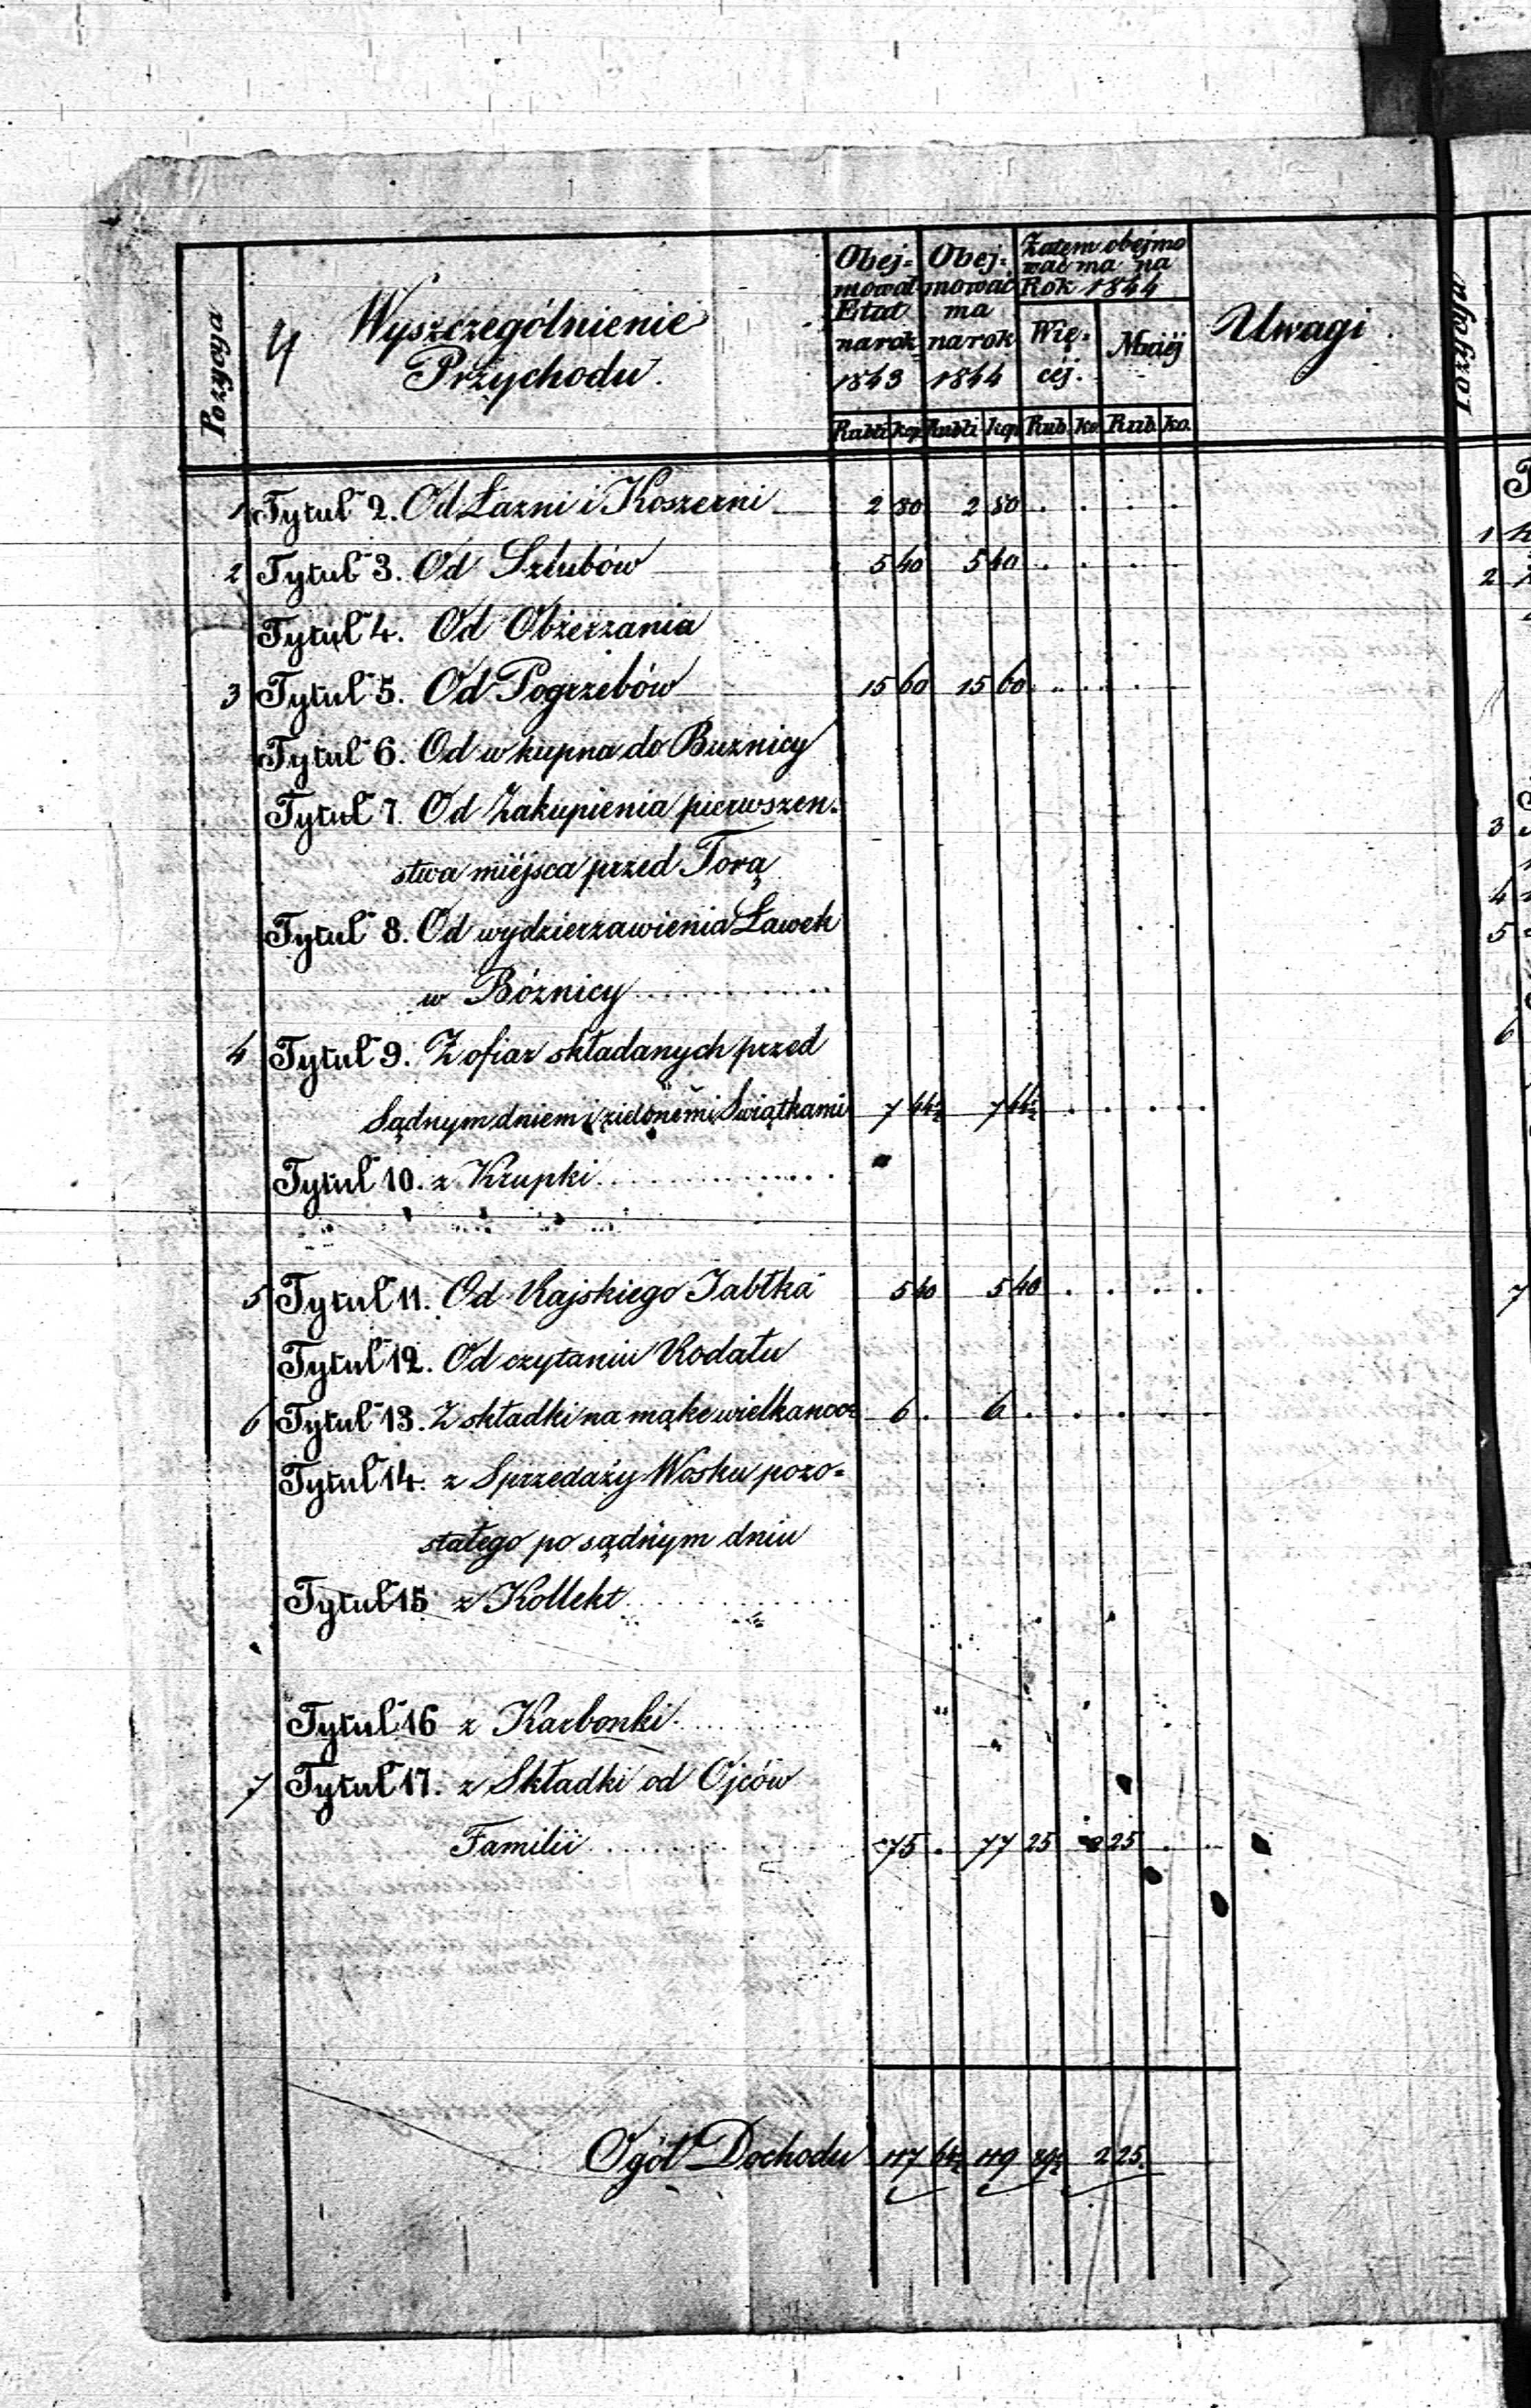 Pozycya
4 Wyszczególnienie
Przychodu.
Obej=
mował
Etat
na rok
1843
Obej=
mować
ma
na rok
1844
Zatem obejmo
wać ma na
Rok 1844
Wię=
céj.
Mniéj
Uwagi
Rubli kop Rubli kop Rub. ko. Rub. ko.
1 Tytuł 2. Od Łazni i Koszerni 2 80 2 80 . . . .
2 Tytuł 3. Od Szlubów 5 40 5 40 . . . .
Tytuł 4. Od Obżerzania
3 Tytuł 5. Od Pogrzebów 15 60 15 60 . . . .
Tytuł 6. Od wkupna do Buznicy
Tytuł 7. Od Zakupienia pierwszen=
stwa miéjsca przed Torą
Tytuł 8. Od wydzierzawienia Ławek
w Bóznicy
4 Tytuł 9. Z ofiar składanych przed
Sądnym dniem i zielonemi Swiątkami 7 44½ 7 44½ . . . .
Tytuł 10. z Krupki
5 Tytuł 11. Od Rajskiego Jabłka 5 40 5 40 . . . .
Tytuł 12. Od czytaniu Rodału
6 Tytuł 13. Z składki na mąke wielkanoc 6 . 6 . . . . .
Tytuł 14. z Sprzedaży Wosku pozo=
stałego po sądnym dniu
Tytuł 15 z Kollekt
Tytuł 16 z Karbonki
7 Tytuł 17. z Składki od Ojców
Familii 75 . 77 25 2 25 . .
Ogół Dochodu 117 64½ 119 89½ 2 25.
Pozycya
1
2
3
4
5
6
7